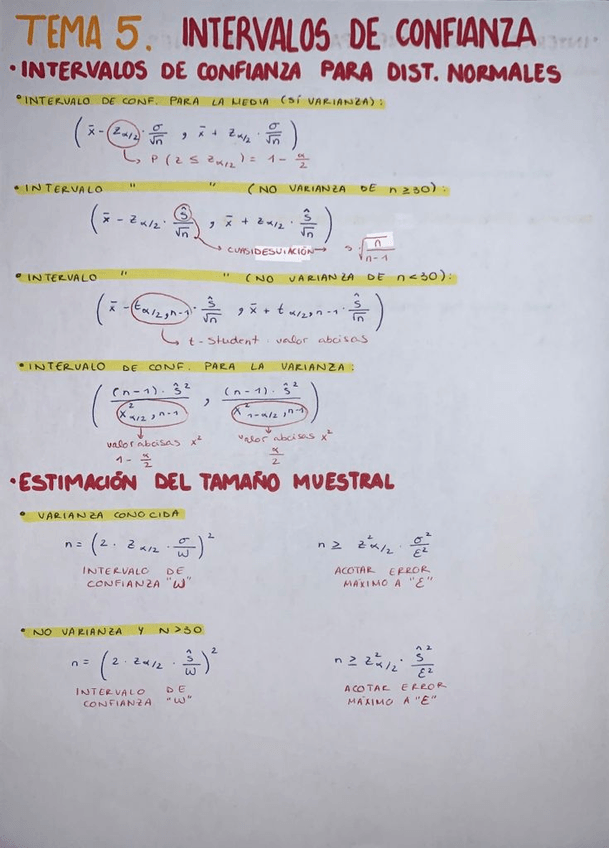 TEMA 5. INTERVALOS DE CONFIANZA
• INTERVALOS DE CONFIANZA PARA DIST. NORMALES
• INTERVALO DE CONF. PARA LA MEDIA (SÍ VARIANZA):
(x̄ - z α/2 · σ/√n , x̄ + z α/2 · σ/√n)
P(z ≤ z α/2) = 1 - α/2
• INTERVALO " " (NO VARIANZA DE n ≥ 30):
(x̄ - z α/2 · ŝ/√n , x̄ + z α/2 · ŝ/√n)
CUASIDESVIACIÓN → s · √(n/(n-1))
• INTERVALO " " (NO VARIANZA DE n < 30):
(x̄ - t α/2, n-1 · ŝ/√n , x̄ + t α/2, n-1 · ŝ/√n)
t-Student · valor abcisas
• INTERVALO DE CONF. PARA LA VARIANZA:
((n-1) · ŝ² / x² α/2, n-1 , (n-1) · ŝ² / x² 1-α/2, n-1)
valor abcisas x² valor abcisas x²
1 - α/2 α/2
• ESTIMACIÓN DEL TAMAÑO MUESTRAL
• VARIANZA CONOCIDA
n = (2 · z α/2 · σ/W)² n ≥ z² α/2 · σ²/ε²
INTERVALO DE ACOTAR ERROR
CONFIANZA "W" MÁXIMO A "ε"
• NO VARIANZA Y N>30
n = (2 · z α/2 · ŝ/W)² n ≥ z² α/2 · ŝ²/ε²
INTERVALO DE ACOTAR ERROR
CONFIANZA "W" MÁXIMO A "ε"